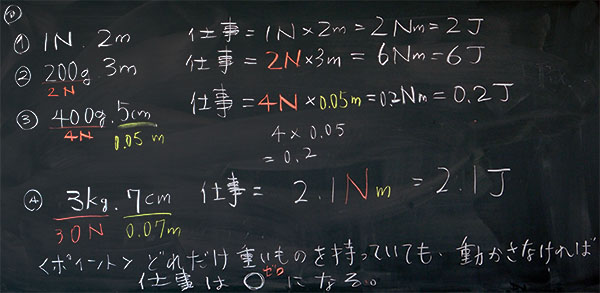 ⓪
① 1N. 2m 仕事 = 1N×2m = 2Nm = 2J
② 200g 3m 仕事 = 2N×3m = 6Nm = 6J
2N
③ 400g. 5cm 仕事 = 4N×0.05m = 0.2Nm = 0.2J
4N 0.05m
4×0.05
= 0.2
④ 3kg. 7cm 仕事 = 2.1Nm = 2.1J
30N 0.07m
<ポイント> どれだけ重いものを持っていても、動かさなければ
ゼロ
仕事は0になる。